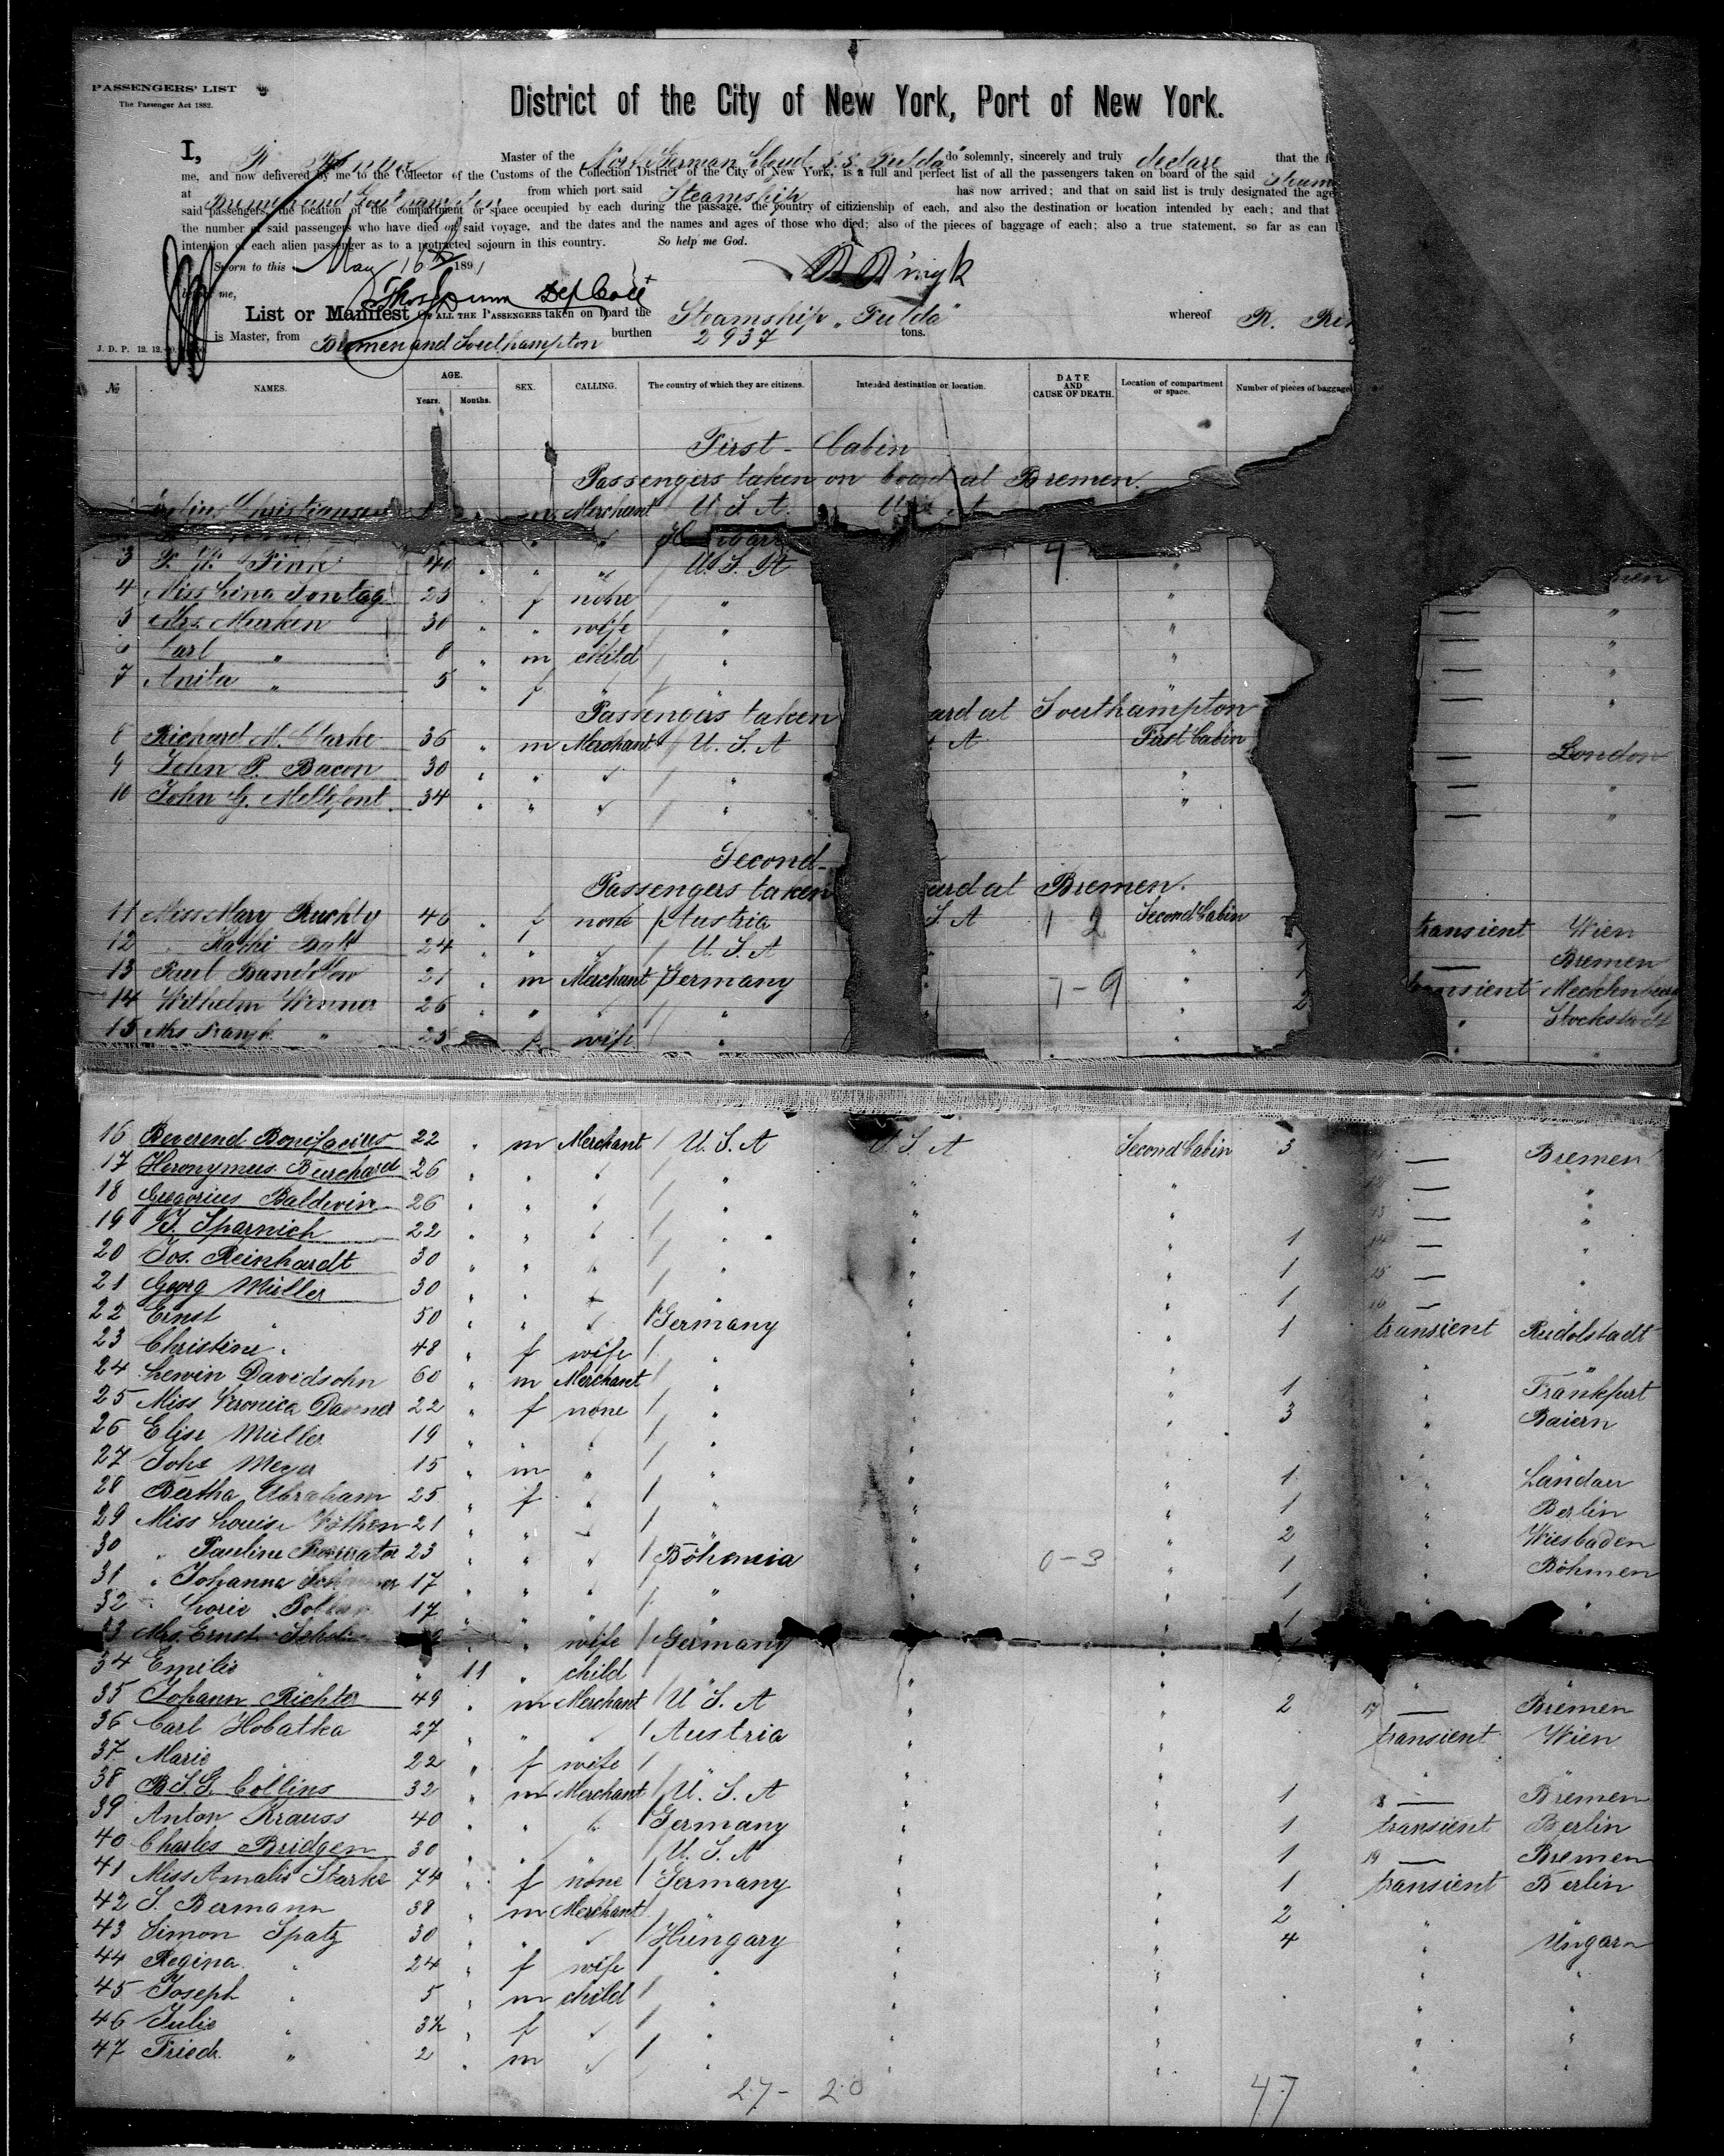 PASSENGERS' LIST
The Passenger Act 1882.
District of the City of New York, Port of New York.
I, Master of the North German Lloyd S. S. Fulda do solemnly, sincerely and truly declare that the
me, and now delivered by me to the Collector of the Customs of the Collection District of the City of New York, is a full and perfect list of all the passengers taken on board of the said
at Bremen and Southampton from which port said Steamship has now arrived; and that on said list is truly designated the age
said passengers, the location of the compartment or space occupied by each during the passage, the country of citizienship of each, and also the destination or location intended by each; and that
the number of said passengers who have died on said voyage, and the dates and the names and ages of those who died; also of the pieces of baggage of each; also a true statement, so far as can
intention of each alien passenger as to a protracted sojourn in this country. So help me God.
Sworn to this May 16th 1891
R Ringk
me,
List or Manifest OF ALL THE PASSENGERS taken on board the Steamship "Fulda" whereof R.
is Master, from Bremen and Southampton burthen 2937 tons.
J. D. P. 12. 12.
№ NAMES. AGE. Years. Months. SEX. CALLING. The country of which they are citizens. Intended destination or location. DATE AND CAUSE OF DEATH. Location of compartment or space. Number of pieces of baggage
First - Cabin
Passengers taken on board at Bremen.
Christiansen m Merchant U. S. A.
3 Fink 40 " " " U. S. A "
4 Miss Lina Sontag 23 " f none " — "
5 Mrs. Meurken 30 " " wife " " — "
6 Carl " 8 " m child " " — "
7 Anita " 5 " f " " " — "
Passengers taken ard at Southampton
8 Richard M. Clarke 36 " m Merchant U. S. A A First Cabin — London
9 John P. Bacon 30 " " " " " — "
10 John G. Mellefont 34 " " " " " — "
Second -
Passengers taken ard at Bremen.
11 Miss Mary Ruchty 46 " f none Austria S. A 1 2 Second Cabin transient Wien
12 " Kathi 24 " " " U. S. A " — Bremen
13 21 " m Merchant Germany " 7-9 " transient
14 Wilhelm Werner 26 " " " " " " 2 "
15 Mrs " 25 " f wife " " "
16 Reverend Bonifacius 22 " m Merchant U. S. A U. S. A Second Cabin 3 — Bremen
17 Heronymus Burchard 26 " " " " " " — "
18 Gregorius Baldwin 26 " " " " " " — "
19 J. Sparnich 22 " " " " " " 1 14 — "
20 Jos. Reinhardt 30 " " " " " " 1 15 — "
21 Georg Müller 30 " " " " " " 1 16 —
22 Ernst " 50 " " " Germany " " 1 transient Rudolstadt
23 Christine " 48 " f wife " " " " "
24 Lewin Davidsohn 60 " m Merchant " " " 1 " Frankfurt
25 Miss Veronica 22 " f none " " " 3 " Baiern
26 Elise Müller 19 " " " " "
27 Johs Meyer 15 " m " " " " 1 " Landau
28 Bertha Abraham 25 " f " " " " 1 " Berlin
29 Miss Louise Köthen 21 " " " " " 2 " Wiesbaden
30 " Pauline 23 " " " Böhmia " 0-3 " 1 " Böhmen
31 " Johanna 17 " " " " " " 1 " "
32 " 17 " " " " " " 1
33 Mrs. Ernst " wife Germany
34 Emilie " " 11 " child " "
35 Johann Richter 49 " m Merchant U. S. A " " 2 17 — Bremen
36 Carl Hobatka 27 " " " Austria " " transient Wien
37 Marie 22 " f wife " " " " "
38 B. S. G. Collins 32 " m Merchant U. S. A " " 1 8 — Bremen
39 Anton Krauss 40 " " " Germany " " 1 transient Berlin
40 Charles Bridgen 30 " " " U. S. A " " 1 19 — Bremen
41 Miss Amalie Starke 74 " f none Germany " " 1 transient Berlin
42 S. Bermann 38 " m Merchant " " 2
43 Simon Spatz 30 " " " Hungary " " 4 " Ungarn
44 Regina " 24 " f wife " " " " "
45 Joseph " 5 " m child " " " " "
46 Julie " 3½ " f " " " " " "
47 Friedr. " 2 " m " " " " " "
27 - 20 47